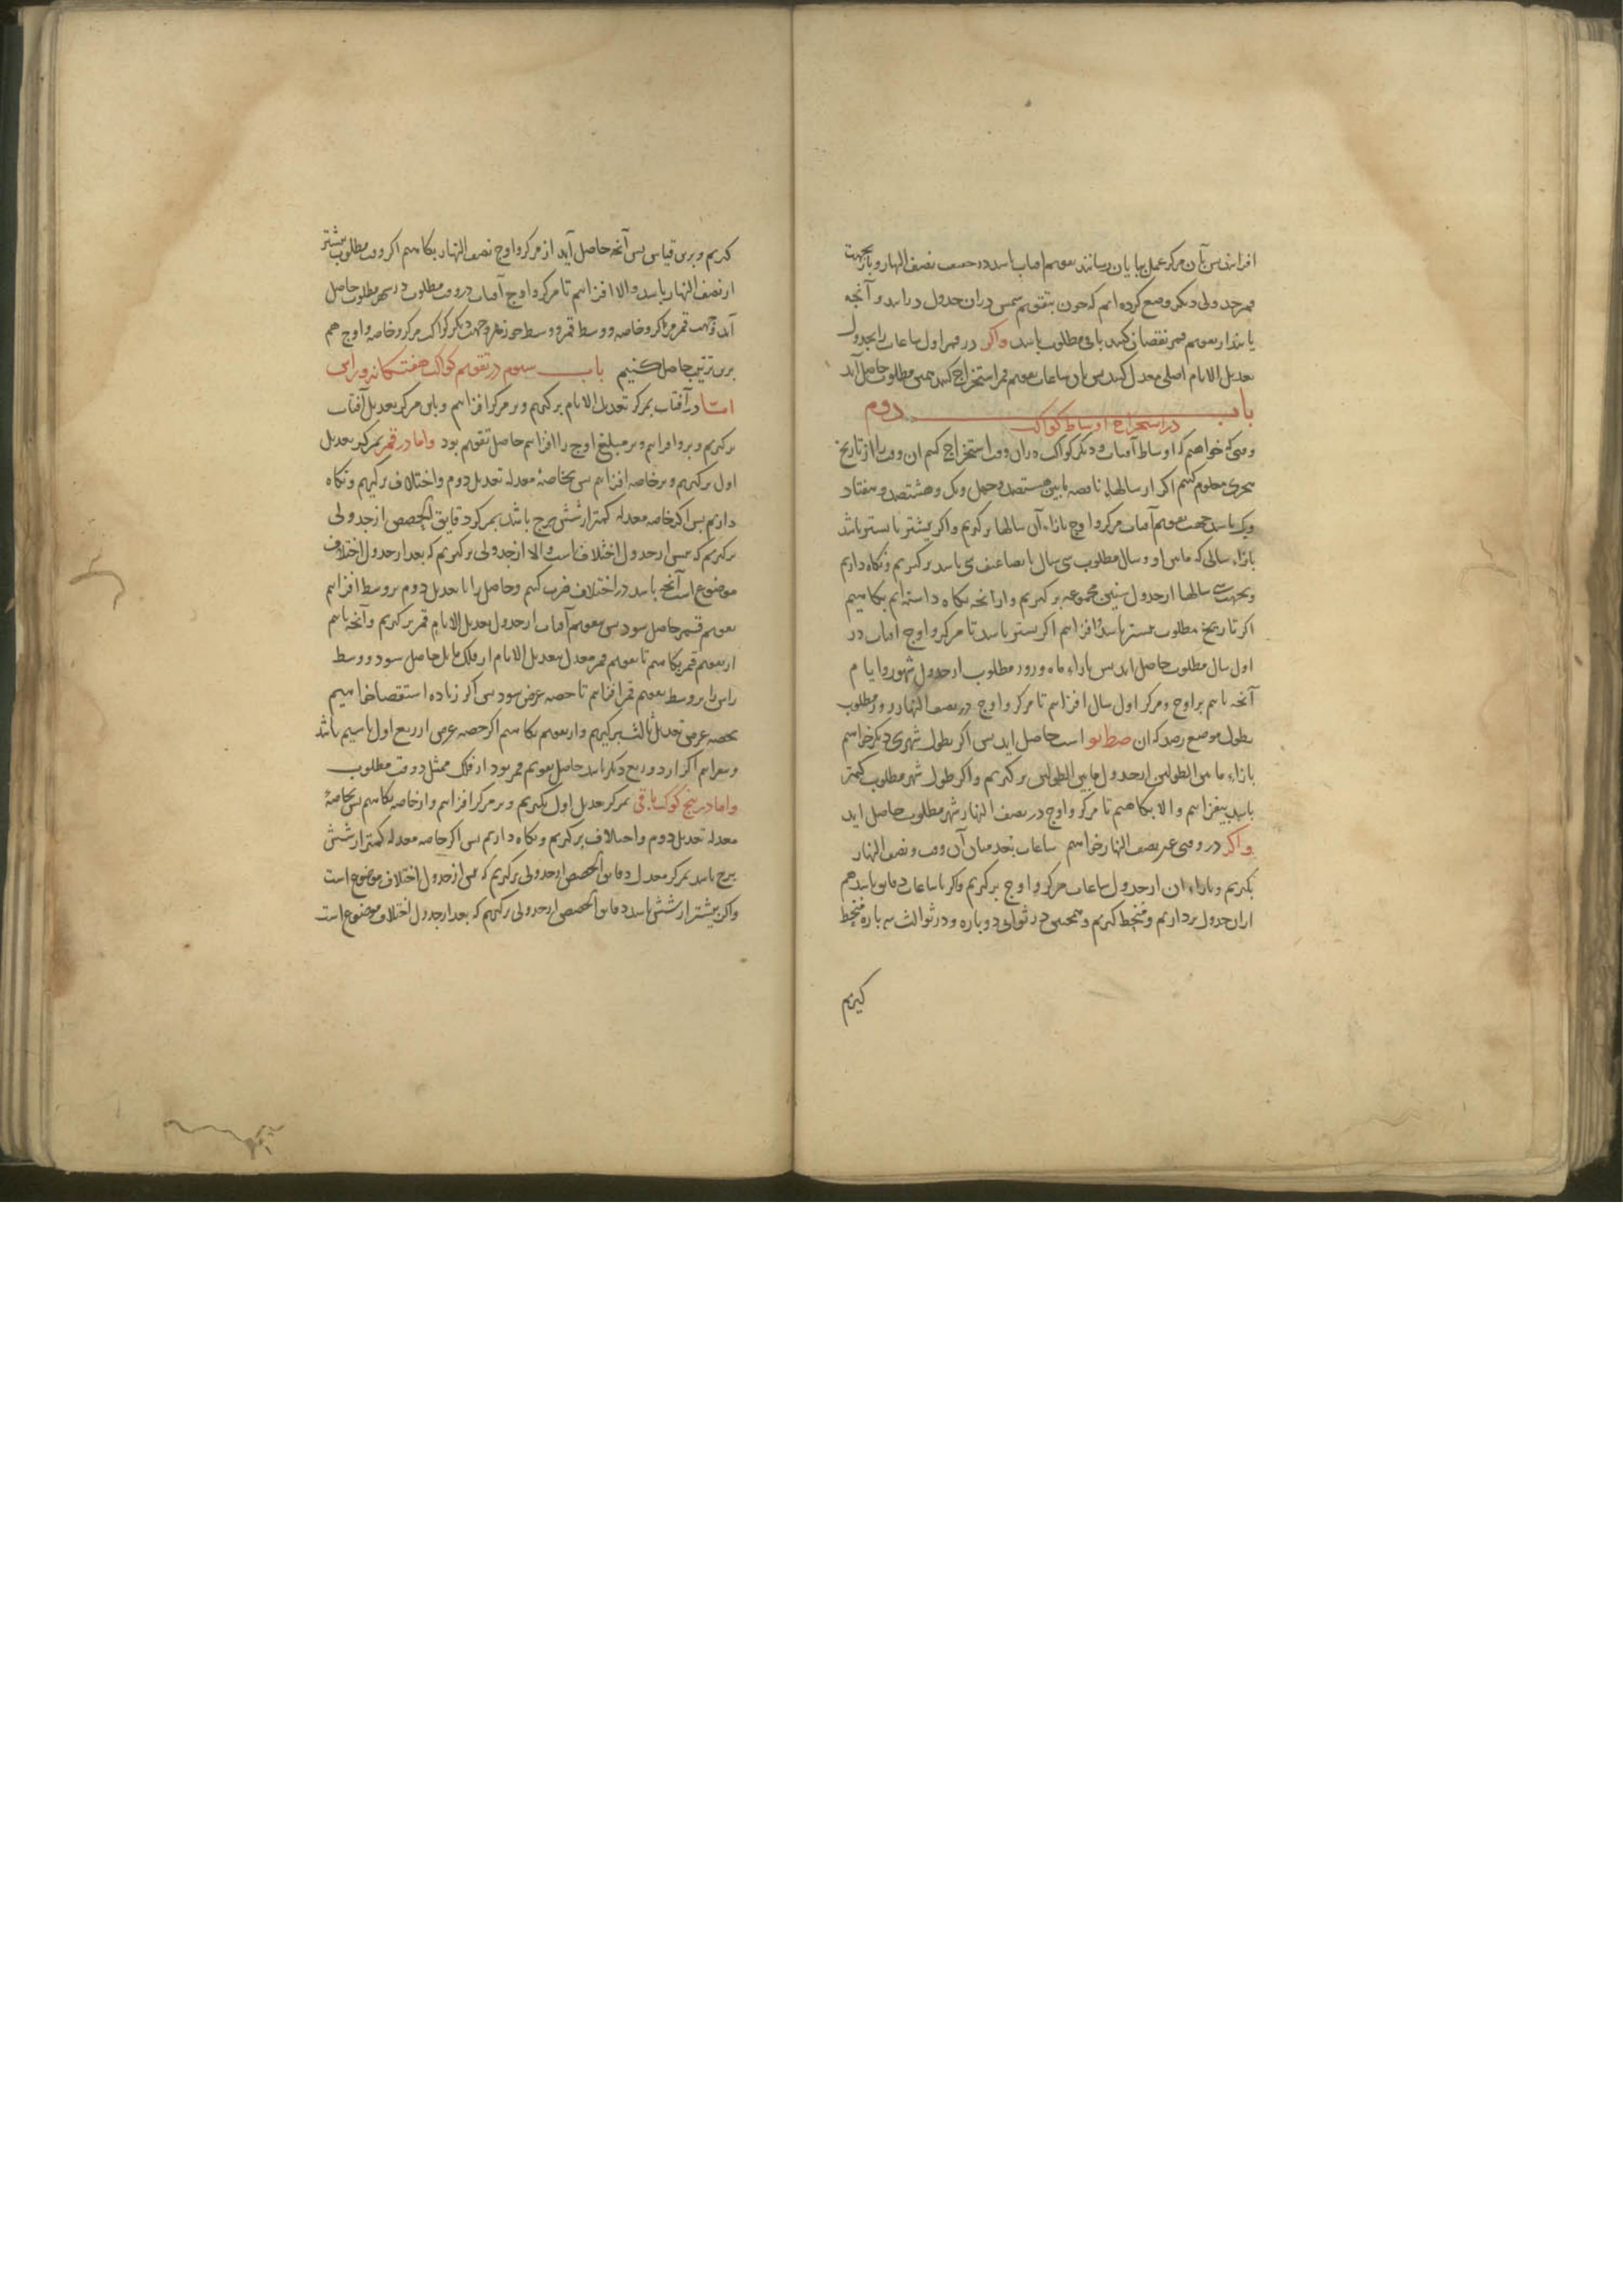 افزایند پس بآن مرکز عمل بپایان رسانند تقویم افتاب باشد در نصف النهار و باز بجهت
قمر جدولی دیگر وضع کرده ایم که چون بتقویم شمس در ان جدول درایند و آنچه
یابند از تقویم قمر نقصان کنند باقی مطلوب باشد واکر در قمر اول ساعات را بجدول
تعدیل الایام اصلی معدل کنند پس بان ساعات تقویم قمر استخراج کنند همین مطلوب حاصل آید
باب دوم
در استخراج اوساط کواکب
وقتی که خواهیم که اوساط آفتاب و دیکر کواکب در ان وقت استخراج کنیم ان وقت را از تاریخ
هجری معلوم کنیم اکر از سالهاء ناقصه مابین هشتصد و چهل ویک و هشتصد و هفتاد
ویک باشد جهت تقویم آفتاب مرکز و اوج بازاء آن سالها برکیریم واکر بیشتر یا پستر باشد
بازاء سالی که مابین او و سال مطلوب سی سال یا تضاعیف سی باشد برکیریم ونکاه داریم
وبجهت سی سالها از جدول سنین مجموعه برکیریم وازانچه نکاه داشته ایم بکاهیم
اکر تاریخ مطلوب بیشتر باشد وافزاییم اکر پستر باشد تا مرکز و اوج افتاب در
اول سال مطلوب حاصل اید پس بازاء ماه و روز مطلوب از جدول شهور وایام
آنچه یابیم بر اوج ومرکز اول سال افزاییم تا مرکز و اوج در نصف النهار روز مطلوب
بطول موضع رصد که ان صط نو است حاصل اید پس اکر بطول شهری دیکر خواهیم
بازاء مابین الطولین از جدول مابین الطولین برکیریم واکر طول شهر مطلوب کمتر
باشد بیفزاییم والا بکاهیم تا مرکز و اوج در نصف النهار شهر مطلوب حاصل اید
واکر در وقتی غیر نصف النهار خواهیم ساعات بعد میان آن وقت و نصف النهار
بکیریم وبازاء ان از جدول ساعات مرکز و اوج برکیریم واکر با ساعات دقایق باشد هم
ازان جدول برداریم ومنحط کیریم وهمچنین در ثوانی دوباره ودر ثوالث سه باره منحط
کیریم
کیریم وبرین قیاس پس آنچه حاصل آید از مرکز و اوج نصف النهار بکاهیم اکر وقت مطلوب پیشتر
از نصف النهار باشد والا افزاییم تا مرکز و اوج آفتاب در وقت مطلوب در شهر مطلوب حاصل
آید وجهت قمر مرکز وخاصه ووسط قمر ووسط جوزهر وجهت دیکر کواکب مرکز وخاصه واوج هم
برین ترتیب حاصل کنیم باب سیوم در تقویم کواکب هفتکانه وراس
اما در آفتاب بمرکز تعدیل الایام برکیریم وبر مرکز افزاییم وباین مرکز تعدیل آفتاب
برکیریم وبرو افزاییم وبر مبلغ اوج را افزاییم حاصل تقویم بود واما در قمر بمرکز تعدیل
اول برکیریم وبر خاصه افزاییم پس بخاصهٔ معدله تعدیل دوم واختلاف برکیریم ونکاه
داریم پس اکر خاصه معدله کمتر از شش برج باشد بمرکز دقایق الحصص از جدولی
برکیریم که پس از جدول اختلاف است والا از جدولی برکیریم که بعد از جدول اختلاف
موضوع است آنچه باشد در اختلاف ضرب کنیم وحاصل را با تعدیل دوم بر وسط افزاییم
تقویم قمر حاصل شود پس بتقویم آفتاب از جدول تعدیل الایام قمر برکیریم وآنچه یابیم
از تقویم قمر بکاهیم تا تقویم قمر معدل بتعدیل الایام از فلک مایل حاصل شود ووسط
راس را بر وسط تقویم قمر افزاییم تا حصه عرض شود پس اکر زیاده استقصا خواهیم
بحصه عرض تعدیل ثالث برکیریم واز تقویم بکاهیم اکر حصه عرض از ربع اول یا سیم باشد
وبیفزاییم اکر از دو ربع دیکر باشد حاصل تقویم قمر بود از فلک ممثل در وقت مطلوب
واما در پنج کوکب باقی بمرکز تعدیل اول بکیریم وبر مرکز افزاییم واز خاصه بکاهیم پس بخاصهٔ
معدله تعدیل دوم واختلاف برکیریم ونکاه داریم پس اکر خاصه معدله کمتر از شش
برج باشد بمرکز معدل دقایق الحصص از جدولی برکیریم که پس از جدول اختلاف موضوع است
واکر بیشتر از شش باشد دقایق الحصص از جدولی برکیریم که بعد از جدول اختلاف موضوع است